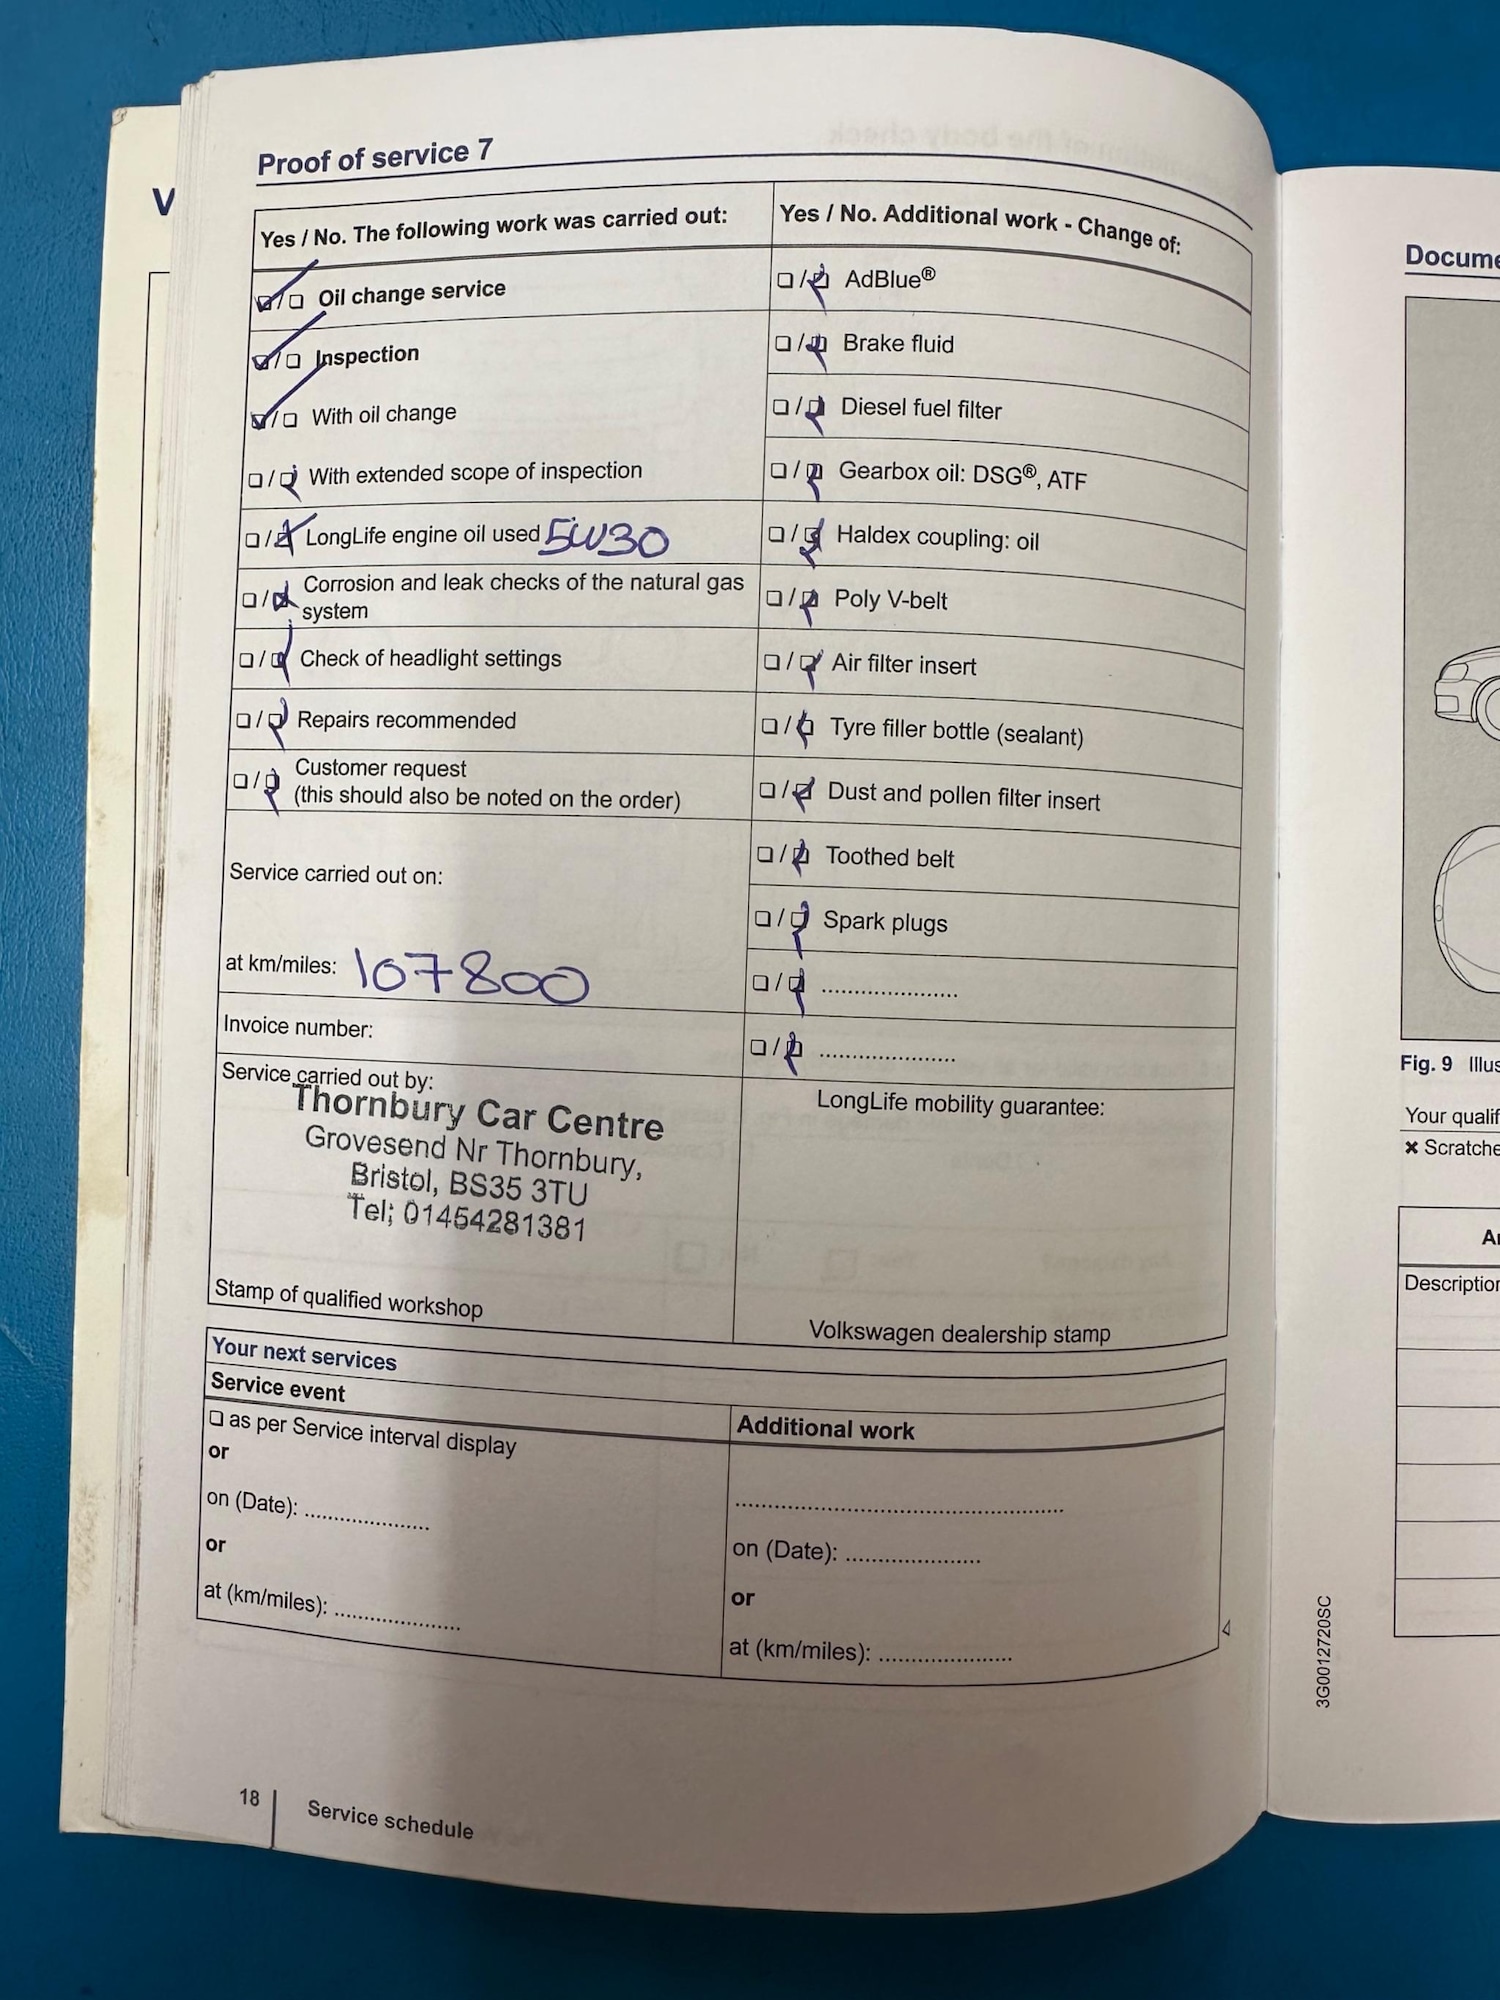 V
Proof of service 7
Yes / No. The following work was carried out:
Oil change service
Inspection
With oil change
With extended scope of inspection
LongLife engine oil used 5W30
Corrosion and leak checks of the natural gas
system
Check of headlight settings
Repairs recommended
Customer request
(this should also be noted on the order)
Service carried out on:
at km/miles: 107800
Invoice number:
Service carried out by:
Thornbury Car Centre
Grovesend Nr Thornbury,
Bristol, BS35 3TU
Tel; 01454281381
Stamp of qualified workshop
Yes / No. Additional work - Change of:
AdBlue®
Brake fluid
Diesel fuel filter
Gearbox oil: DSG®, ATF
Haldex coupling: oil
Poly V-belt
Air filter insert
Tyre filler bottle (sealant)
Dust and pollen filter insert
Toothed belt
Spark plugs
......................
......................
LongLife mobility guarantee:
Volkswagen dealership stamp
Your next services
Service event
as per Service interval display
or
on (Date): ....................
or
at (km/miles): ....................
Additional work
....................................................
on (Date): ......................
or
at (km/miles): ......................
18
Service schedule
Docume
Fig. 9 Illus
Your qualif
✖ Scratche
Description
3G0012720SC